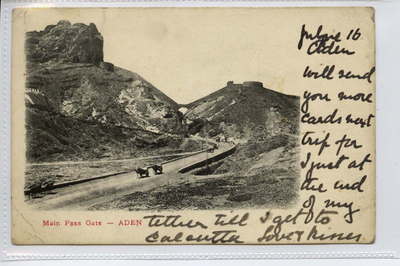 June 16
Aden
will send
you more
cards next
trip for
I just at
the end
of my
Main Pass Gate — ADEN
tether till I get to
Calcutta Love & Kisses